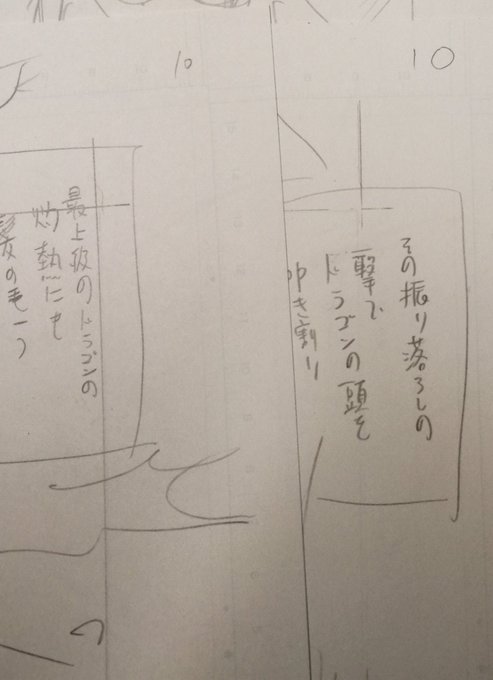 10
その振り落ろしの
一撃で
ドラゴンの頭を
叩き割り
10
最上級のドラゴンの
灼熱にも
髪の毛一つ